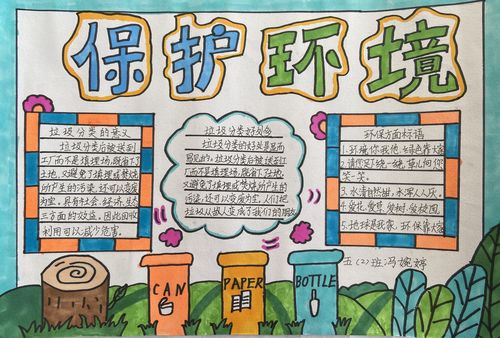 保护环境
垃圾分类的意义
垃圾分类后被送到
工厂而不是填埋场,既省下了
土地,又避免了填埋或焚烧
所产生的污染,还可以变废
为宝。具有社会、经济、生态
三方面的效益。因此回收
利用可以减少危害。
垃圾分类好处多
垃圾分类的好处是显而
易见的。垃圾分类后被送到工
厂而不是填埋场,既省下了土地,
又避免了填埋或焚烧所产生的
污染,还可以变废为宝。人们把
垃圾从敌人变成了我们的朋友
环保方面标语
1.环境你我他,绿色靠大家
2.请您足下绕一绕,草儿向你
笑一笑。
3.水清自然甜,水浑人人厌。
4.爱花、爱草、爱树、爱校园。
5.地球是我家,环保靠大家
五(2)班冯婉婷
CAN
PAPER
BOTTLE